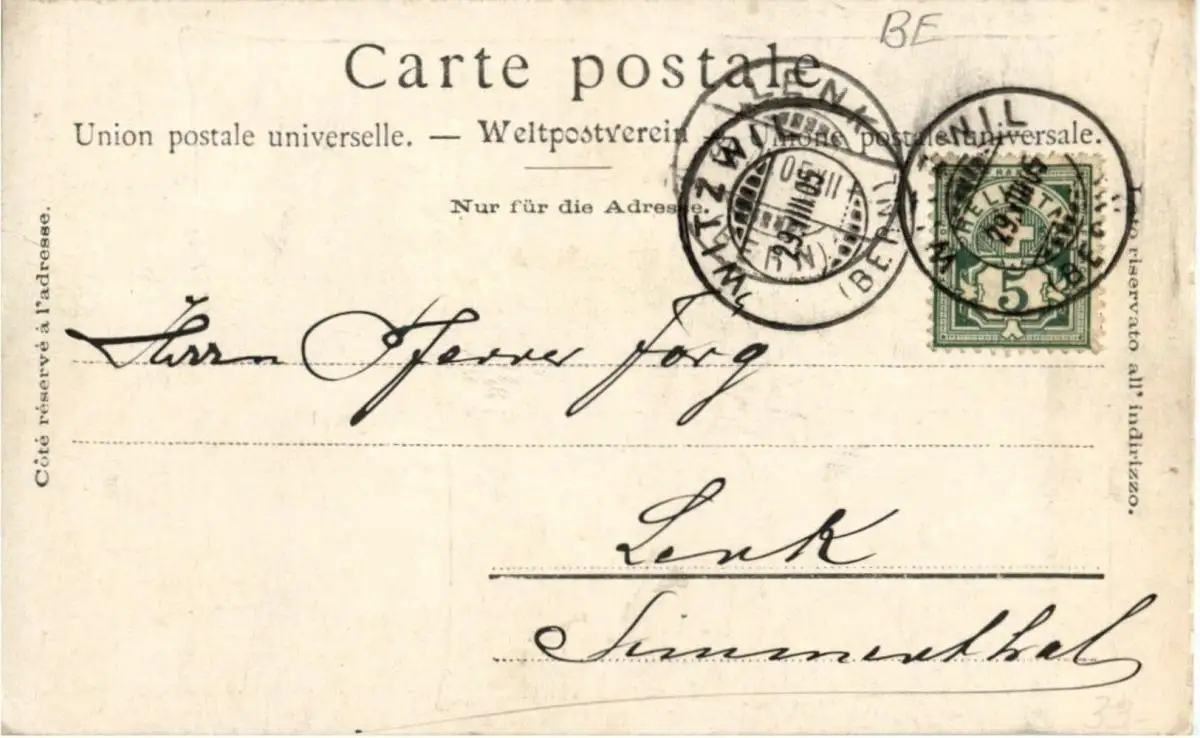 BE
Carte postale
Union postale universelle. — Weltpostverein — Unione postale universale.
Nur für die Adresse.
Côté réservé à l'adresse.
Lato riservato all' indirizzo.
LENK
WITZWIL
(BERN)
29.VIII.05
WITZWIL
(BERN)
29.VIII.05
HELVETIA
5
Herrn Pfarrer Jörg
Lenk
Simmenthal
39-